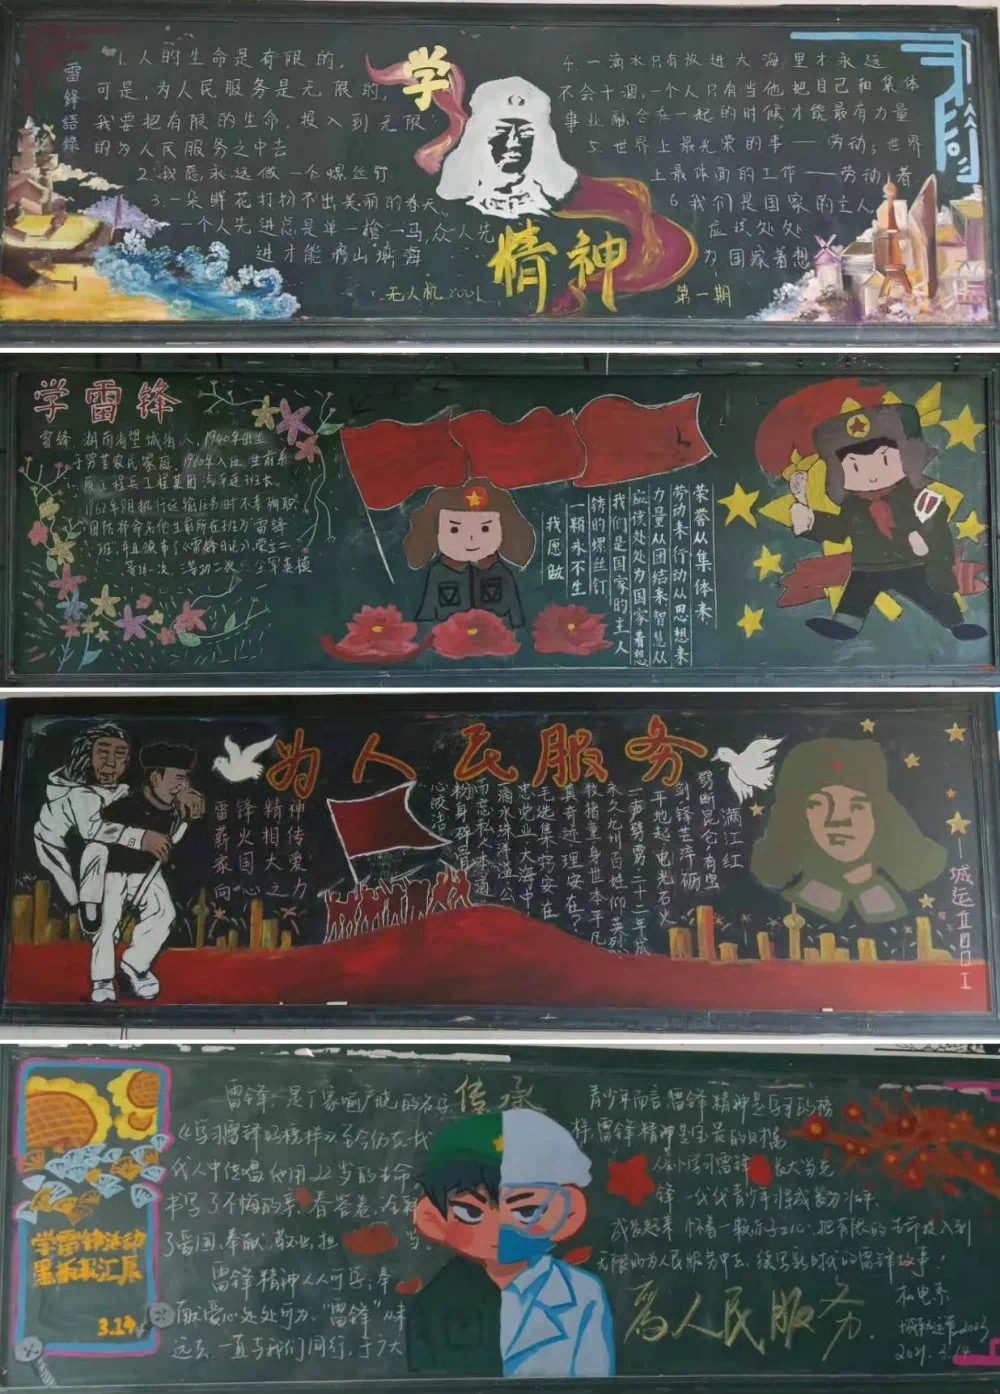 雷锋語錄
1. 人的生命是有限的,
可是,为人民服务是无限的,
我要把有限的生命,投入到无限
的为人民服务之中去
2. 我愿永远做一个螺丝钉
3. 一朵鲜花打扮不出美丽的春天
一个人先进总是单一槍一马,众人先
进才能移山填海
无人机2001
学
精神
4. 一滴水只有放进大海里才永远
不会干涸,一个人只有当他把自己和集体
事业融合在一起的时候才能最有力量
5. 世界上最光荣的事——劳动;世界
上最体面的工作——劳动者
6. 我们是国家的主人
应该处处
为国家着想
第一期
学雷锋
雷锋 湖南省望城 人,1940年出生
于穷苦农民家庭,1960年入伍 生前系
工程兵工程某团汽车连班长,
1962年8月执行运输任务时不幸殉职
国防部命名他生前所在班为"雷锋
班,并且颁布了《雷锋日记》,荣立二
等功一次,三等功二次! 全军英模
荣誉从集体来
劳动来行动从思想来
力量从团结来智慧从
应该处处为国家着想
我们是国家的主人
锈的螺丝钉
一颗永不生
我愿做
为人民服务
神传爱力
精相大之
锋火国心
雷薪家向
满江红
劈断昆仑,有宝
剑锋 世萍砺
平地起 电光石火
一声劈雳,二十二年成
永久九州百姓仰英烈
牧犊童身世本平凡
真奇迹 理安在?
毛选集 窍安在
忠党业 大海中
滴水珠洋溢 公
而忘私人
粉身碎骨
心皎洁
城运2001
传承
雷锋,是一个家喻户晓的名字,
《学习雷锋好榜样》至今仍在代
代人中传唱,他用22岁的生命
书写了不悔的青春答卷,诠释
了爱国,奉献,敬业,担当。
雷锋精神人人可学;奉
献爱心处处可为。"雷锋"从未
远去,一直与我们同行,于广大
青少年而言,雷锋精神是学习的榜
样,雷锋精神是宝贵的财富
人小学习雷锋 长大当先
锋 一代代青少年
怀着一颗赤子之心,把有限的生命投入到
无限的为人民服务中去,续写新时代的雷锋故事!
为人民服务.
机电系
城轨运营2003
2021. 3. 14
学雷锋活动
黑板报汇展
3.14